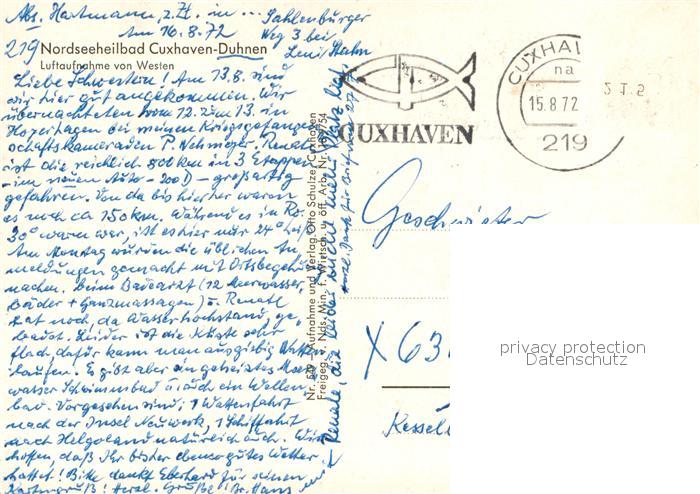 Abs. Hartmann, z. Zt. in ... Sahlenburger
Am 16.8.72 Weg 3 bei
219 Nordseeheilbad Cuxhaven-Duhnen Leni Strahn
Luftaufnahme von Westen
Liebe Schwestern! Am 13.8. sind
wir hier gut angekommen. Wir
übernachteten vom 12. zum 13. in
bei meinen Kriegsgefangen-
schaftskameraden P. Nehmeyer. Renate
ist die reichlich 800 km in 3 Etappen
- im neuen Auto - 200 D - großartig
gefahren. Von da bis hierher waren
es noch ca 150 km. Während es in Ro.
30° warm war, ist es hier nur 24° heiß
Am Montag wurden die üblichen An
meldungen gemacht mit Ortsbegehung
machen. Beim Badearzt (12 Meerwasser
bäder + Ganzmassagen) u. Renate
hat noch, da Wasserhochstand, ge-
badet. Leider ist die Küste sehr
flach, dafür kann man ausgiebig Watten
laufen. Es gibt aber ein geheiztes Meer
wasser Schwimmbad u. auch ein Wellen
bad. Vorgesehen sind: 1 Wattenfahrt
nach der Insel Neuwerk, 1 Schiffahrt
nach Helgoland natürlich auch. Wir
hoffen, daß Ihr bisher ebenso gutes Wetter
hattet! Bitte dankt Eberhard für seinen
Kartengruß! Herzl. Grüße! Br. Hans
mit Renate, die leider keinen Platz
herzl. Dank für Brief
Nr. 519 Aufnahme und Verlag Otto Schulze, Cuxhaven
Freigeg. v. Nds. Min. f. Wirtsch. u. öff. Arb. Nr.
CUXHAVEN
CUXHA
na
15.8.72
219
Geschwister
X 63
Kessel
privacy protection
Datenschutz